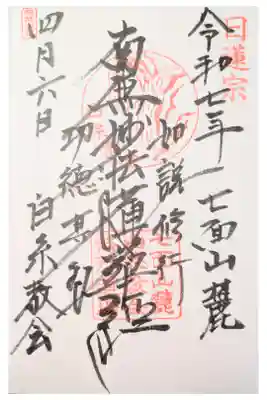 日蓮宗
令和七年 七面山麓
如説修行
南無妙法蓮華経
功徳甚
四月六日 白糸教会